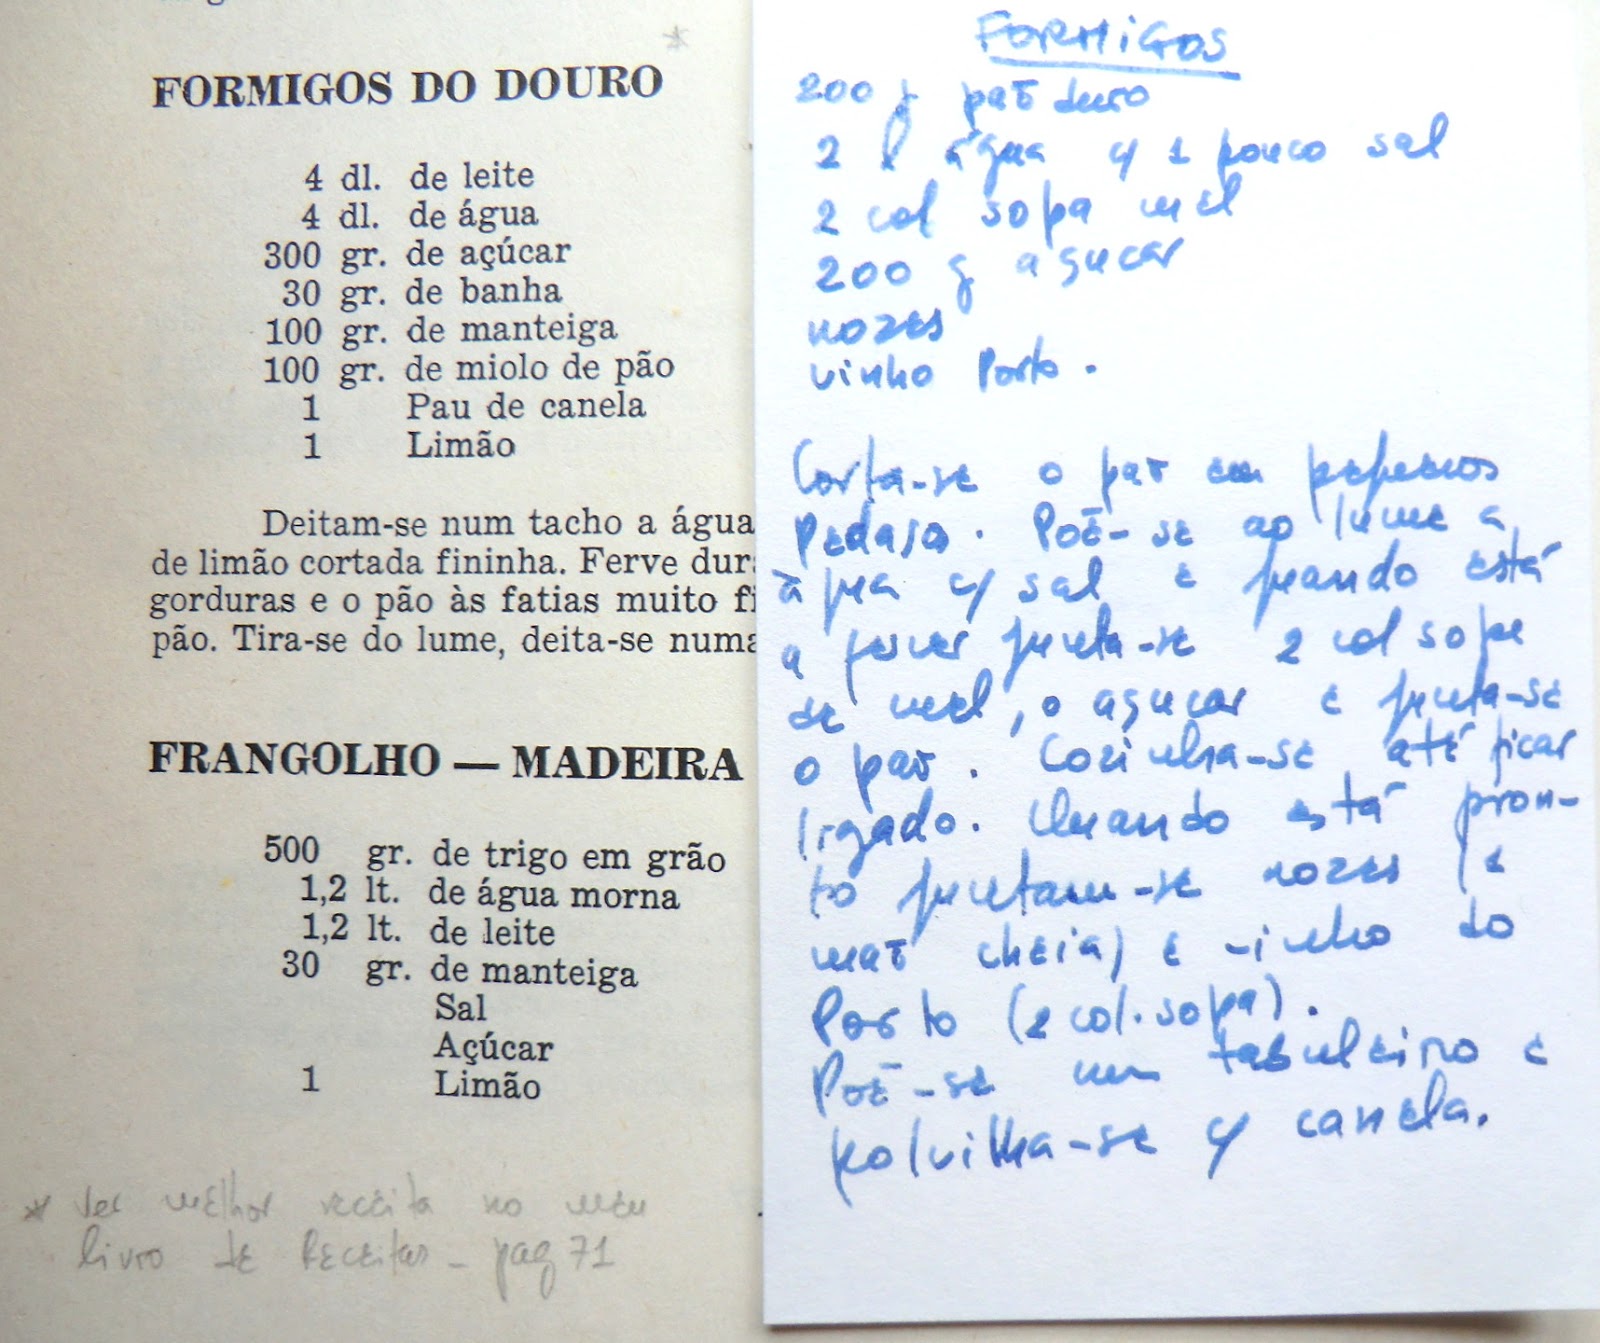 *
FORMIGOS DO DOURO
4 dl. de leite
4 dl. de água
300 gr. de açúcar
30 gr. de banha
100 gr. de manteiga
100 gr. de miolo de pão
1 Pau de canela
1 Limão
Deitam-se num tacho a água
de limão cortada fininha. Ferve dur
gorduras e o pão às fatias muito fi
pão. Tira-se do lume, deita-se numa
FRANGOLHO — MADEIRA
500 gr. de trigo em grão
1,2 lt. de água morna
1,2 lt. de leite
30 gr. de manteiga
Sal
Açúcar
1 Limão
* ver melhor receita no meu
livro de Receitas - pag 71
FORMIGOS
200 g pão duro
2 l água c/ 1 pouco sal
2 col sopa mel
200 g açucar
nozes
vinho Porto.
Corta-se o pão em pequenos
pedaços. Põe-se ao lume a
água c/ sal e quando está
a ferver junta-se 2 col sopa
de mel, o açucar e junta-se
o pão. Cozinha-se até ficar
ligado. Quando está pron-
to juntam-se nozes (1
mão cheia) e vinho do
Porto (2 col. sopa).
Põe-se num tabuleiro e
polvilha-se c/ canela.